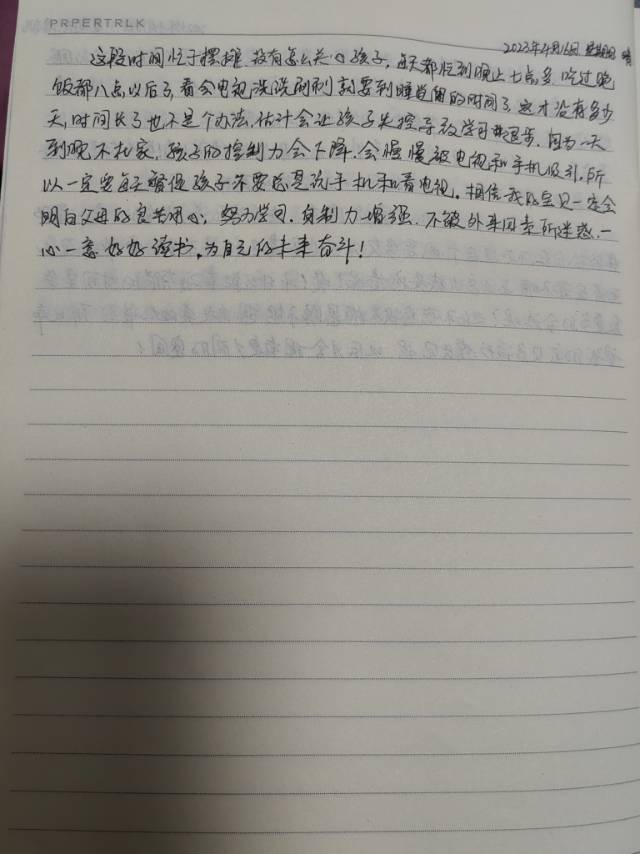 PRPERTRLK
2023年4月16日 星期日 晴
这段时间忙于摆摊,没有怎么关心孩子,每天都忙到晚上七点多,吃过晚
饭都八点以后了,看会电视洗洗刷刷就要到睡觉的时间了,这才没有多少
天,时间长了也不是个办法,估计会让孩子失控导致学习退步,因为一天
到晚不在家,孩子的控制力会下降,会慢慢被电视和手机吸引,所
以一定要每天督促孩子不要总是玩手机和看电视。相信我的宝贝一定会
明白父母的良苦用心,努力学习,自制力增强,不被外来因素所迷惑,一
心一意好好读书,为自己的未来奋斗!